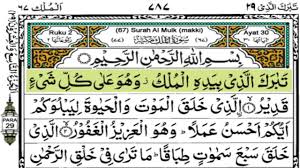 الملك ٦٧ ٧٨٧ تبرك الذى ٢٩
Ruku 2 (67) Surah Al Mulk (makki) Ayat 30
بِسْمِ اللّٰهِ الرَّحْمٰنِ الرَّحِيْمِ
تَبٰرَكَ الَّذِىْ بِيَدِهِ الْمُلْكُ وَهُوَ عَلٰى كُلِّ شَىْءٍ
قَدِيْرُ ۙ الَّذِىْ خَلَقَ الْمَوْتَ وَالْحَيٰوةَ لِيَبْلُوَكُمْ
PARA 29 اَيُّكُمْ اَحْسَنُ عَمَلًا ؕ وَهُوَ الْعَزِيْزُ الْغَفُوْرُ ۙ الَّذِىْ
خَلَقَ سَبْعَ سَمٰوٰتٍ طِبَاقًا ؕ مَا تَرٰى فِىْ خَلْقِ الرَّحْمٰنِ